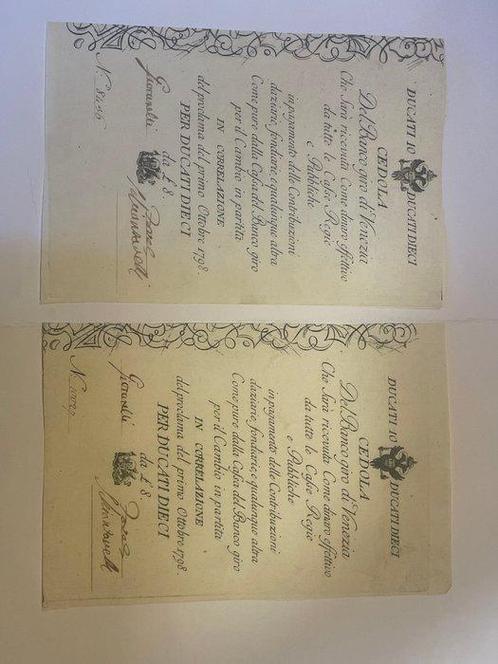 DUCATI 10 DUCATI DIECI
CEDOLA
Del Banco giro di Venezia
Che Sarà ricevuta Come dinaro effettivo
da tutte le Casse Regie
e Pubbliche
in pagamento delle Contribuzioni
daziarie, fondiarie, e qualunque altra
Come pure dalla Cassa del Banco giro
per il Cambio in partita
IN CORRELAZIONE
del proclama del primo Ottobre 1798.
PER DUCATI DIECI
da £ 8.
Giovanelli
N.
DUCATI 10 DUCATI DIECI
CEDOLA
Del Banco giro di Venezia
Che Sarà ricevuta Come dinaro effettivo
da tutte le Casse Regie
e Pubbliche
in pagamento delle Contribuzioni
daziarie, fondiarie, e qualunque altra
Come pure dalla Cassa del Banco giro
per il Cambio in partita
IN CORRELAZIONE
del proclama del primo Ottobre 1798.
PER DUCATI DIECI
da £ 8
Giovanelli
N.